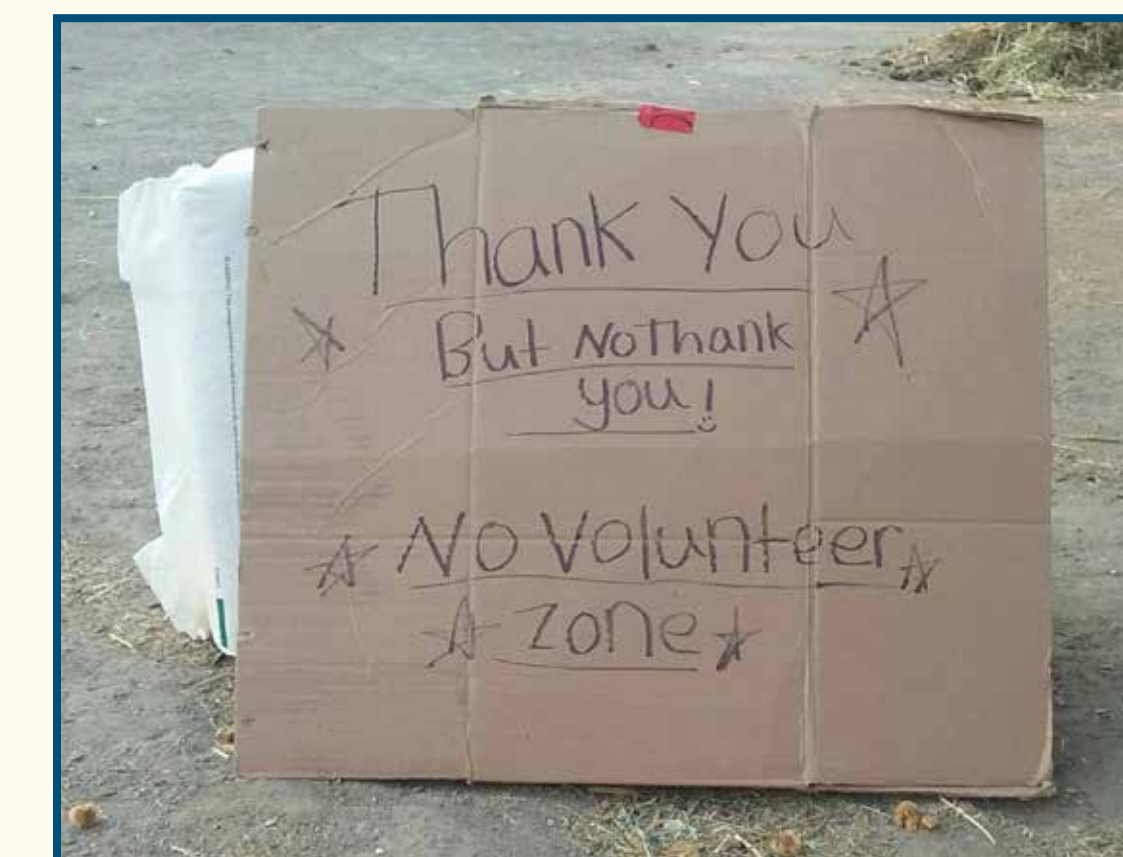 Thank You
But No Thank
you!
No Volunteer
Zone